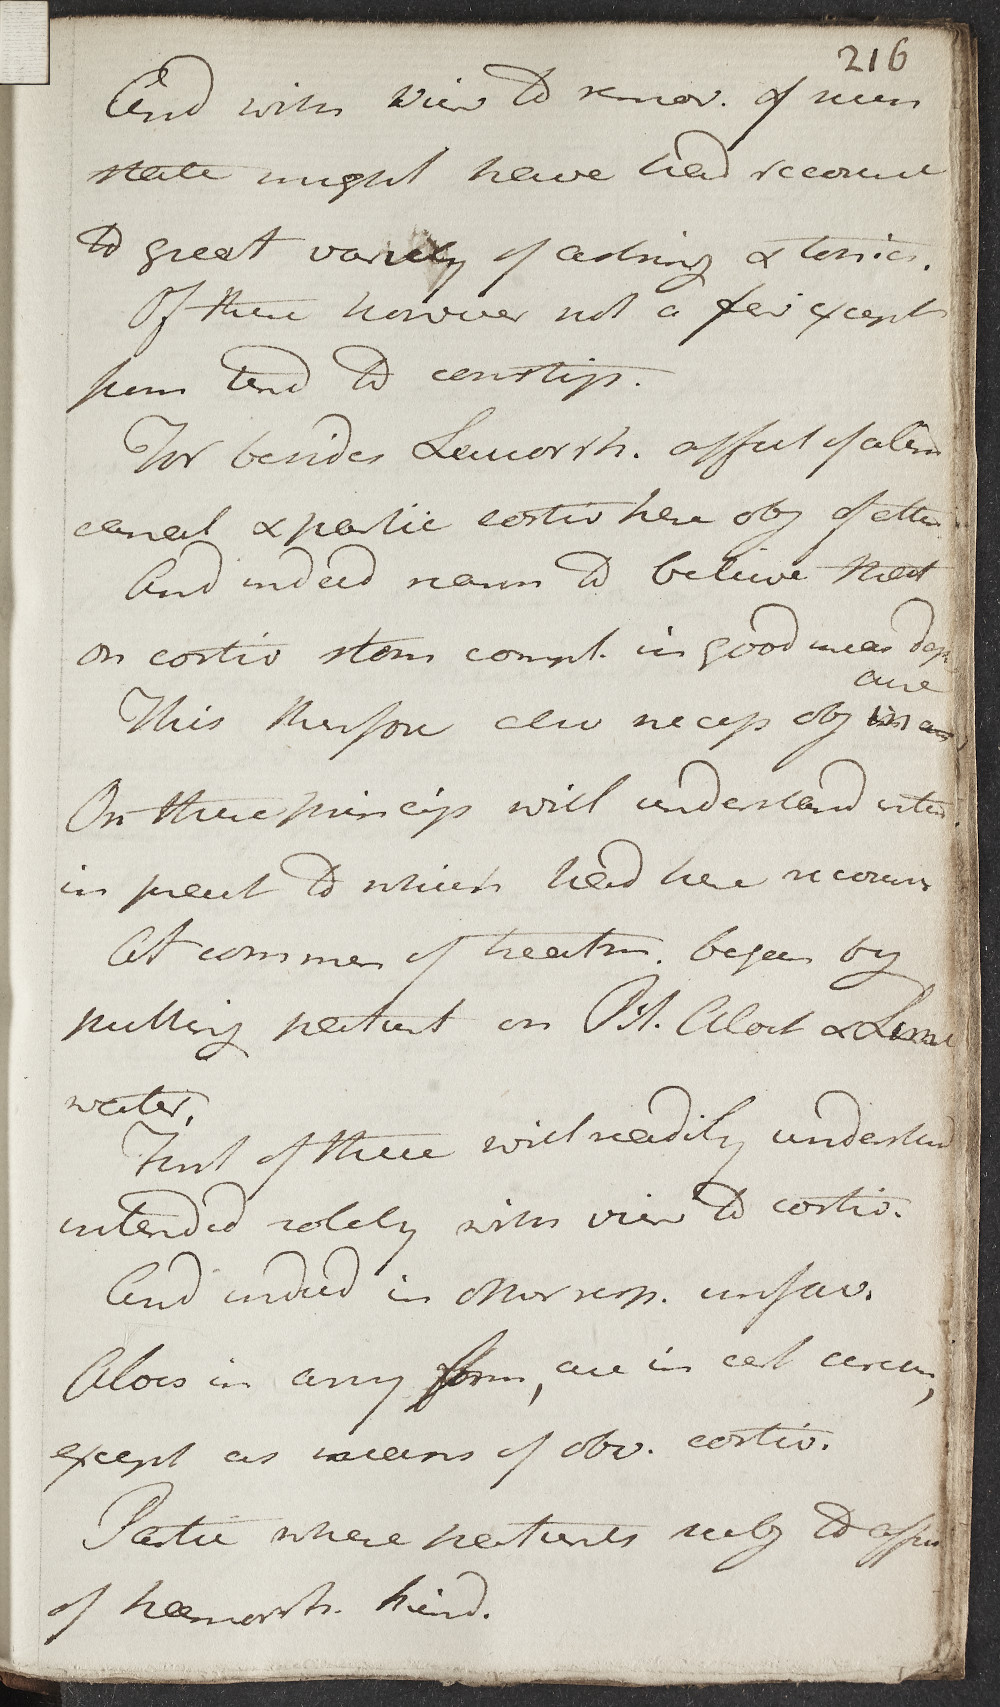 216
And with view to remov. of mere
state might have had recourse
to great variety of astring & tonics.
Of these however not a few except
tend to constip.
For besides Leucorrh. affect of alim
canal & partic costiv here obj of atten
And indeed reason to believe that
on costiv stom compl. in good meas dep
are
This therefore also neces obj
On these princip will understand inten.
in pract to which had here recours
At commen of treatm. began by
putting patient on Pil. Aloet & Lime
water.
First of these will readily understand
intended solely with view to costiv.
And indeed in other resp. unfav.
Aloes in any form, are in cases,
except as means of obv. costiv.
Partic where patients subj to affec
of haemorrh. kind.